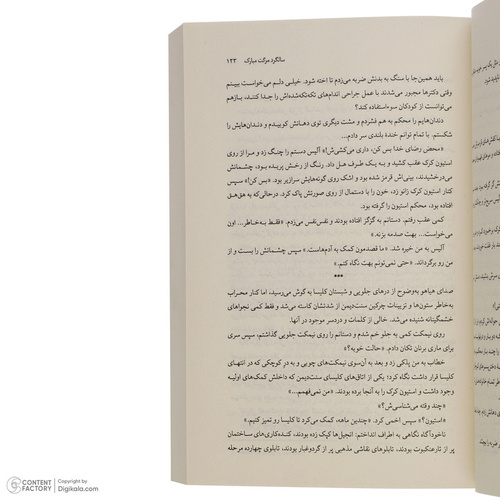 سالگرد مرگت مبارک ۱۲۳
باید همین‌جا با سنگ به بدنش ضربه می‌زدم تا اخته شود. خیلی دلم می‌خواست ببینم
وقتی دکترها مجبور می‌شدند با عمل جراحی اندام‌های تکه‌تکه‌شده‌اش را جدا کنند، بازهم
می‌توانست از کودکان سوءاستفاده کند؟
دندان‌هایم را محکم به هم فشردم و مشت دیگری توی دهانش کوبیدم و دندان‌هایش را
شکستم. با تمام توانم خندهٔ بلندی سر دادم...
«محض رضای خدا بس کن، داری می‌کشی‌ش!» آلیس دستم را چنگ زد و مرا از روی
استیون کرک عقب کشید و به یک طرف هل داد. رنگ از رخش پریده بود، چشمانش
گرد افتاده بودند، بینی‌اش قرمز شده بود و اشک روی گونه‌هایش سرازیر بود. «بس کن!» سپس
کنار استیون کرک زانو زد، خون را با دستمال از روی صورتش پاک کرد. درحالی‌که به هق‌هق
افتاده بود، محکم استیون را گرفته بود.
کمی عقب رفتم. دستانم به گزگز افتاده بودند و نفس‌نفس می‌زدم. «فقط به‌خاطر... اون
می‌خواست... بهت صدمه بزنه.»
آلیس به من خیره شد. «ما قصدمون کمک به آدم‌هاست.» سپس چشمانش را بست و از
من رو برگرداند. «حتی نمی‌تونم بهت نگاه کنم.»
***
صدای هیاهو به‌وضوح از درهای جلویی و شبستان کلیسا به گوش می‌رسید، اما کنار محراب
به‌خاطر ستون‌ها و تزیینات چرکین سنت‌دیمن از شدتشان کاسته می‌شد و فقط کمی نجواهای
خشمگینانه شنیده می‌شد. خالی از کلمات و دردسر موجود در آنها.
روی نیمکت کمی به جلو خم شدم و دستانم را روی نیمکت جلویی گذاشتم، سپس سری
برای ماری برنان تکان دادم. «حالت خوبه؟»
خطاب به من پلکی زد و بعد به آن‌سوی نیمکت‌های چوبی و به در کوچکی که در انتهای
کلیسا قرار داشت نگاه کرد؛ یکی از اتاق‌های کلیسای سنت‌دیمن که داخلش کمک‌های اولیه
وجود داشت و استیون کرک را به آنجا برده بودند. «من نمی‌فهمم...»
«چند وقته می‌شناسی‌ش؟»
«استیون؟» سپس اخمی کرد. «چندین ماهه، کمک می‌کرد تا کلیسا رو تمیز کنیم.»
ناخودآگاه نگاهی به اطراف انداختم: انجیل‌ها کپک زده بودند، کنده‌کاری‌های ساختمان
پر از تارعنکبوت بودند، تابلوهای نقاشی مذهبی پر از گردوغبار بودند، تابلوی چهارده مرحله
CONTENT FACTORY © Copyright by Digikala.com